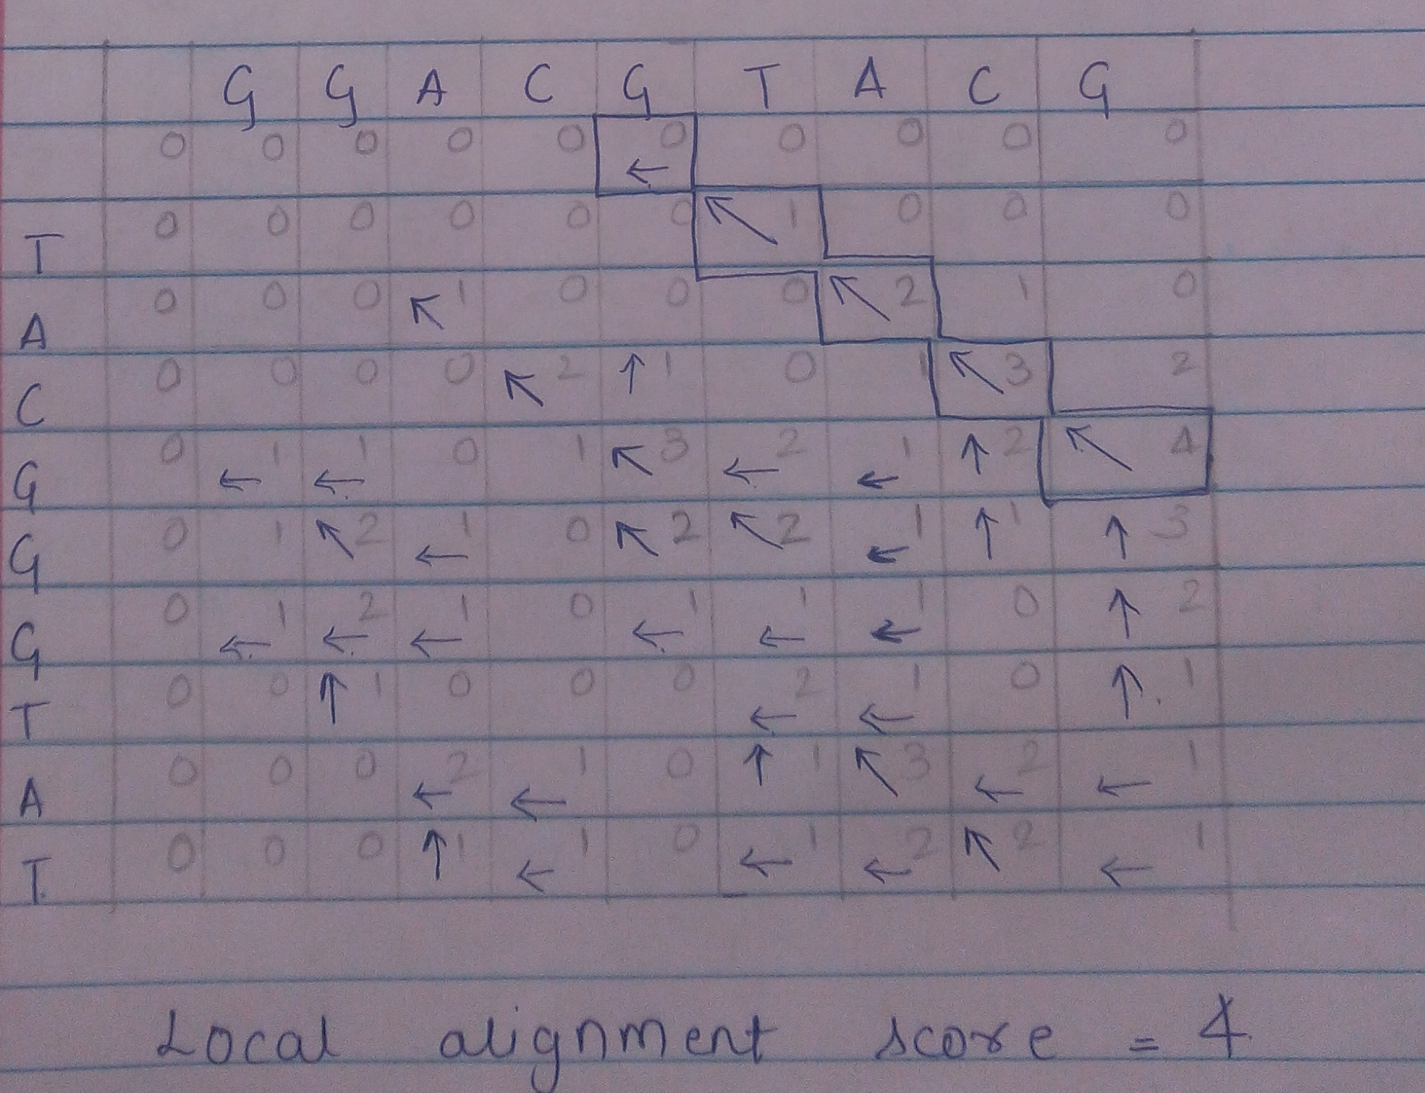 G G A C G T A C G
0 0 0 0 0 0 ← 0 0 0 0
T 0 0 0 0 0 0 ↖ 1 0 0 0
A 0 0 0 ↖ 1 0 0 0 ↖ 2 1 0
C 0 0 0 0 ↖ 2 ↑ 1 0 1 ↖ 3 2
G 0 ← 1 ← 1 0 1 ↖ 3 ← 2 ← 1 ↑ 2 ↖ 4
G 0 1 ↖ 2 ← 1 0 ↖ 2 ↖ 2 ← 1 ↑ 1 ↑ 3
G 0 ← 1 ← 2 ← 1 0 ← 1 ← 1 ← 1 0 ↑ 2
T 0 0 ↑ 1 0 0 0 ← 2 ← 1 0 ↑ 1
A 0 0 0 ← 2 ← 1 0 ↑ 1 ↖ 3 ← 2 ← 1
T 0 0 0 ↑ 1 ← 1 0 ← 1 ← 2 ↖ 2 ← 1
Local alignment score = 4